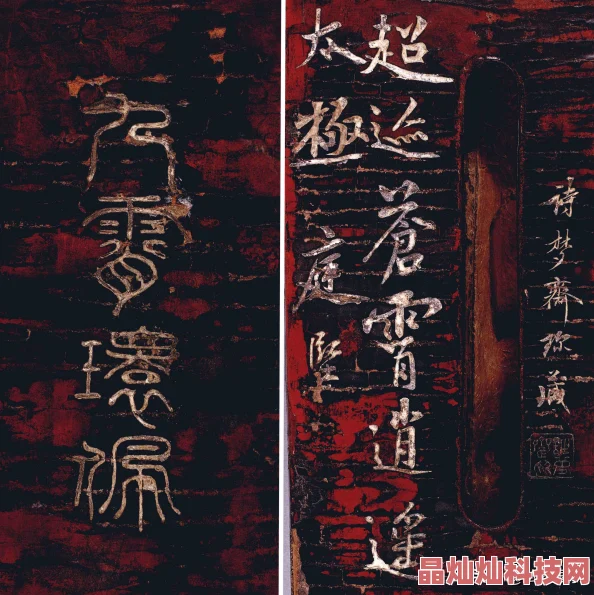 九霄環佩
詩梦齋珍藏
超迹蒼霄逍遥
太極
庭堅
晶灿灿科技网